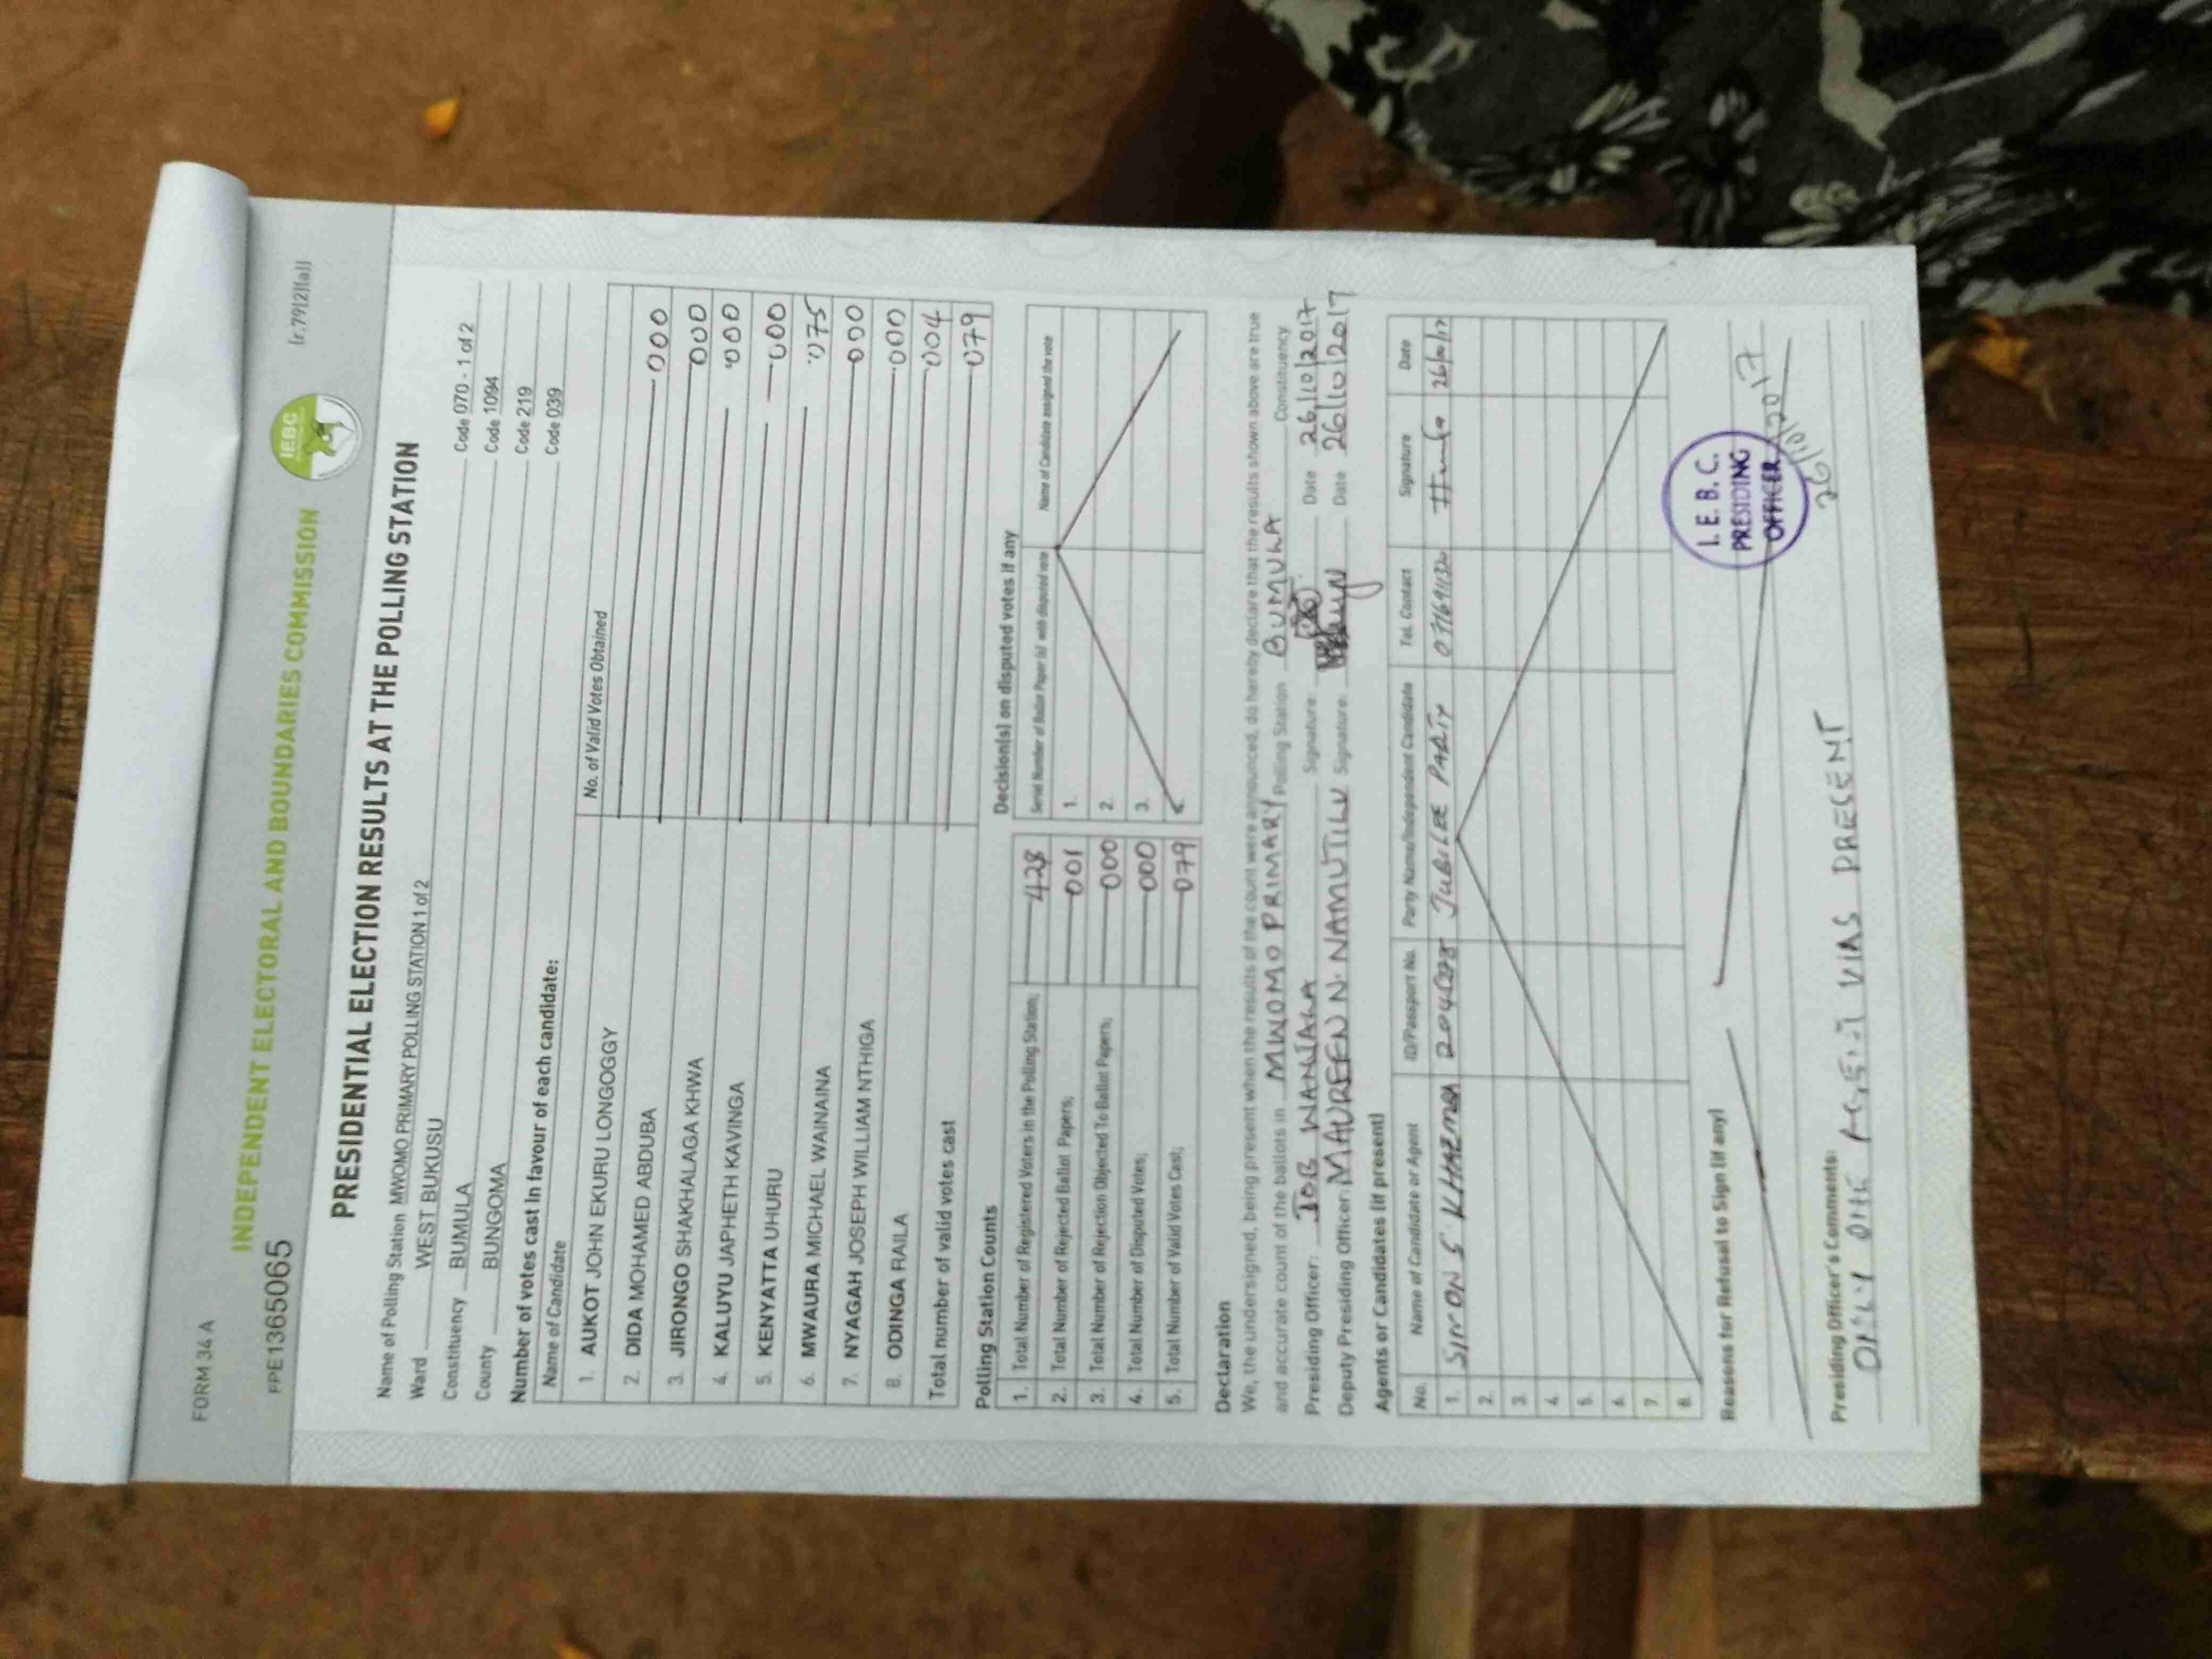 FORM 34 A
(r.79(2)(a))
INDEPENDENT ELECTORAL AND BOUNDARIES COMMISSION
IEBC
FPE1365065
PRESIDENTIAL ELECTION RESULTS AT THE POLLING STATION
Name of Polling Station MWOMO PRIMARY POLLING STATION 1 of 2 Code 070 - 1 of 2
Ward WEST BUKUSU Code 1094
Constituency BUMULA Code 219
County BUNGOMA Code 039
Number of votes cast in favour of each candidate:
Name of Candidate No. of Valid Votes Obtained
1. AUKOT JOHN EKURU LONGOGGY 000
2. DIDA MOHAMED ABDUBA 000
3. JIRONGO SHAKHALAGA KHWA 000
4. KALUYU JAPHETH KAVINGA 000
5. KENYATTA UHURU 075
6. MWAURA MICHAEL WAINAINA 000
7. NYAGAH JOSEPH WILLIAM NTHIGA 000
8. ODINGA RAILA 004
Total number of valid votes cast 079
Polling Station Counts
1. Total Number of Registered Voters in the Polling Station; 428
2. Total Number of Rejected Ballot Papers; 001
3. Total Number of Rejection Objected To Ballot Papers; 000
4. Total Number of Disputed Votes; 000
5. Total Number of Valid Votes Cast; 079
Decision(s) on disputed votes if any
Serial Number of Ballot Paper (s) with disputed vote Name of Candidate assigned the vote
1.
2.
3.
Declaration
We, the undersigned, being present when the results of the count were announced, do hereby declare that the results shown above are true
and accurate count of the ballots in MWOMO PRIMARY Polling Station BUMULA Constituency
Presiding Officer: JOB WANJALA Signature: Date 26/10/2017
Deputy Presiding Officer: MAUREEN N. NAMUTILU Signature: Date 26/10/2017
Agents or Candidates (if present)
No. Name of Candidate or Agent ID/Passport No. Party Name/Independent Candidate Tel. Contact Signature Date
1. SIMON S. JUBILEE PARTY 26/10/17
2.
3.
4.
5.
6.
7.
8.
Reasons for Refusal to Sign (if any)
I. E. B. C.
PRESIDING
OFFICER
26/10/2017
Presiding Officer's Comments:
ONLY ONE AGENT WAS PRESENT